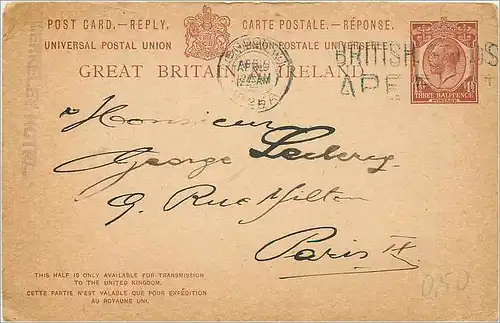 POST CARD.—REPLY. CARTE POSTALE.—RÉPONSE.
UNIVERSAL POSTAL UNION UNION POSTALE UNIVERSELLE
GREAT BRITAIN IRELAND
LONDON
APR 9
25
BRITISH
THREE HALFPENCE
Monsieur
George Leclerq
9. Rue Milton
Paris IX
THIS HALF IS ONLY AVAILABLE FOR TRANSMISSION
TO THE UNITED KINGDOM.
CETTE PARTIE N'EST VALABLE QUE POUR EXPÉDITION
AU ROYAUME UNI.
0,50